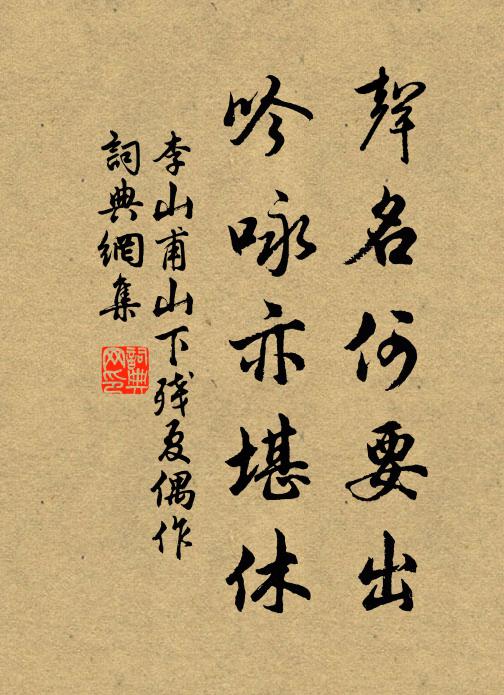 聲名何要出
吟咏亦堪休
李山甫山下残夏偶作
詞典網集
詞典网印